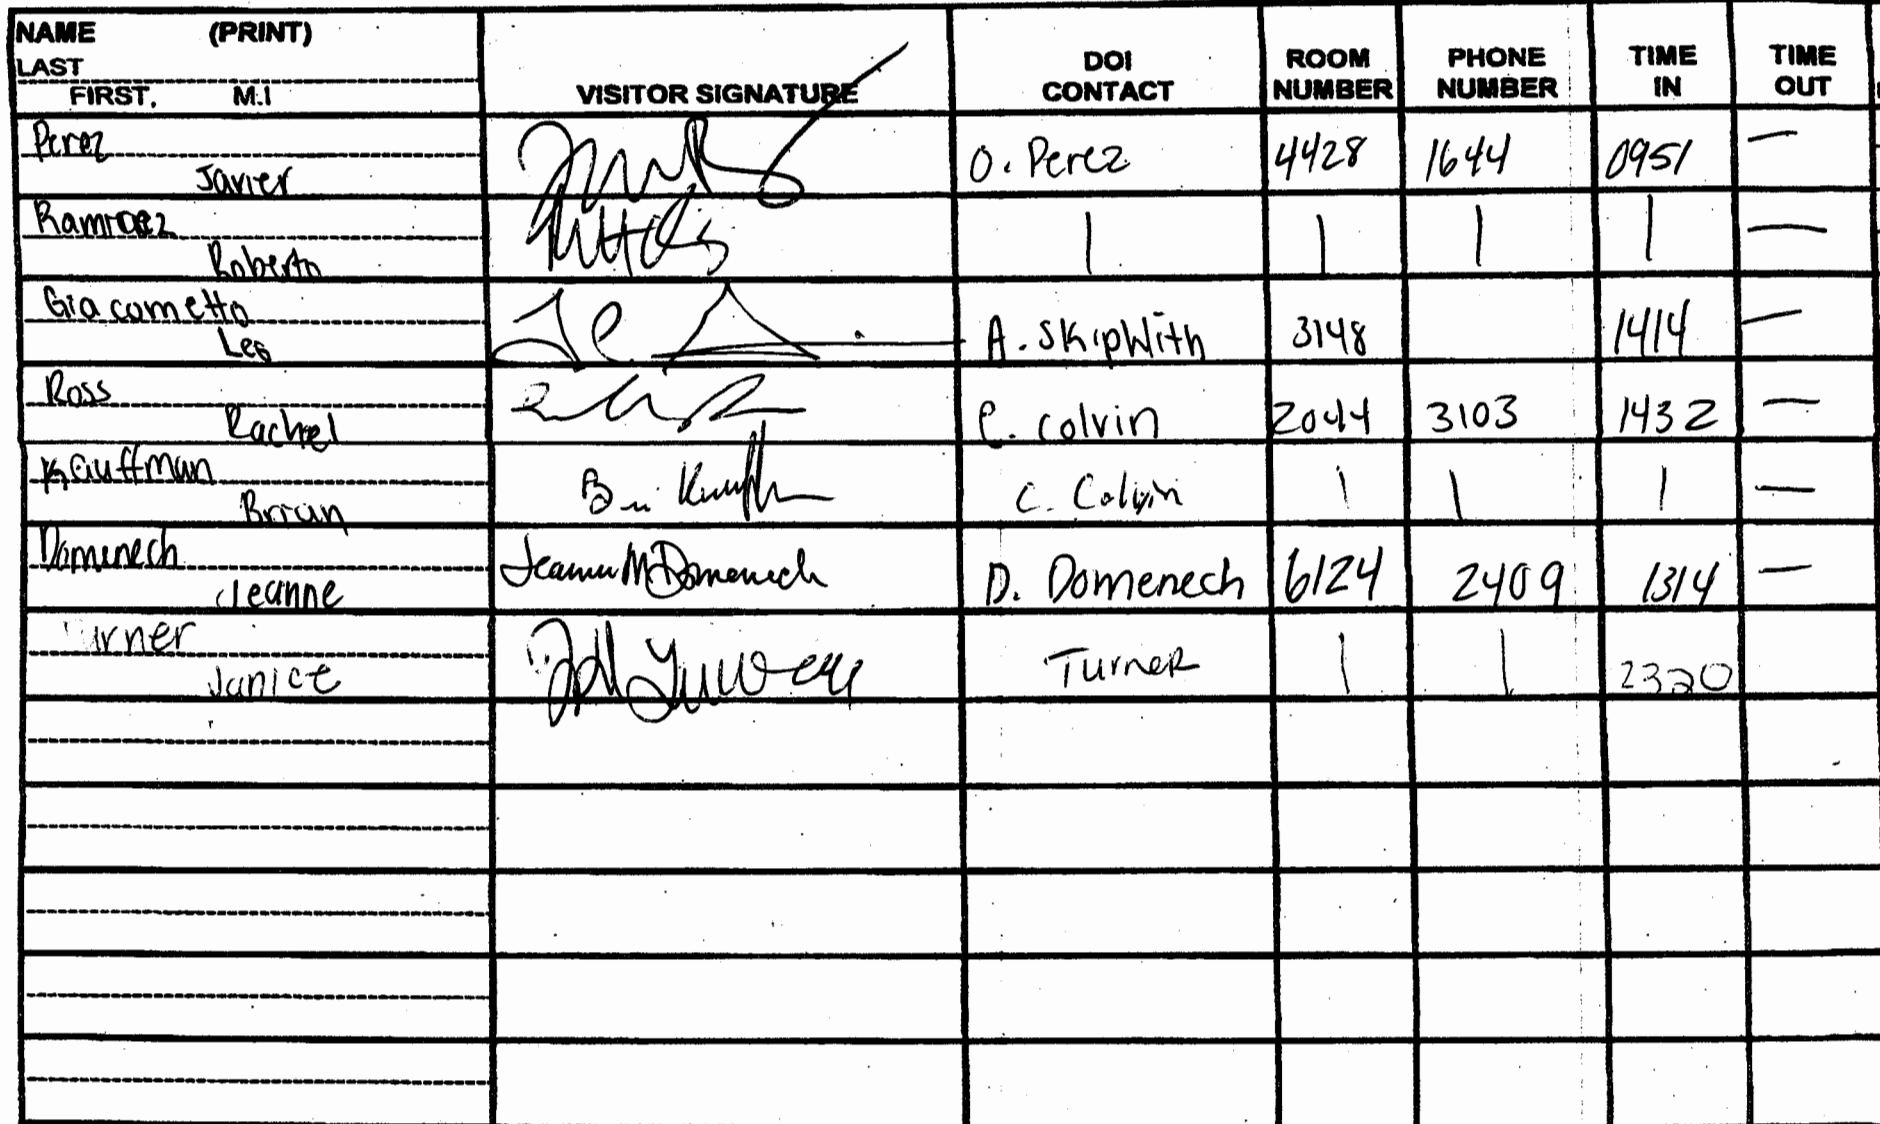 NAME (PRINT)
LAST
FIRST, M.I
VISITOR SIGNATURE
DOI CONTACT
ROOM NUMBER
PHONE NUMBER
TIME IN
TIME OUT
Perez
Javier
O. Perez 4428 1644 0951 —
Ramirez
Roberto
| | | | —
Giacometto
Leo
A. Skipwith 3148 1414 —
Ross
Rachel
C. Colvin 2044 3103 1432 —
Kauffman
Brian
Bri Kauffman C. Colvin | | | —
Domenech
Jeanne
Jeanne M Domenech D. Domenech 6124 2409 1314 —
urner
Janice
Turner | | 2320